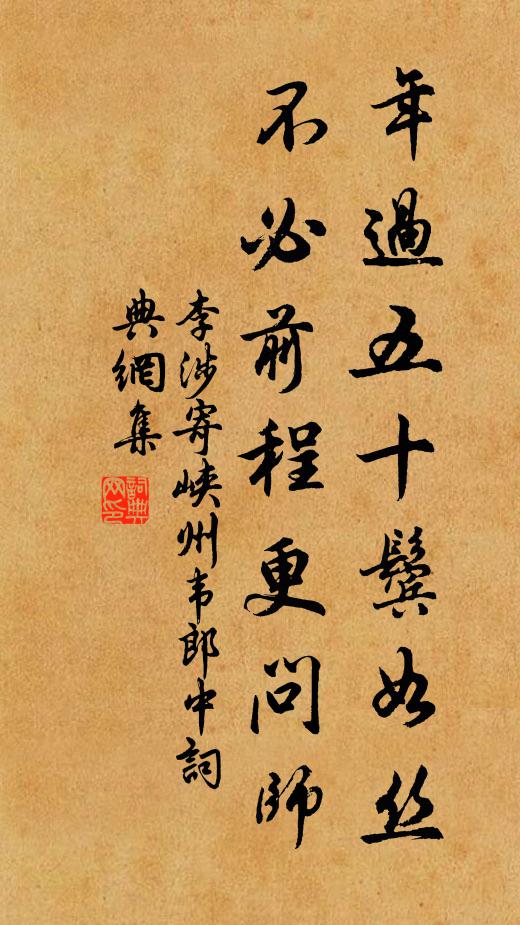 年過五十鬢如丝
不必前程更問師
李涉寄峡州韦郎中詞
典網集
詞典
网印